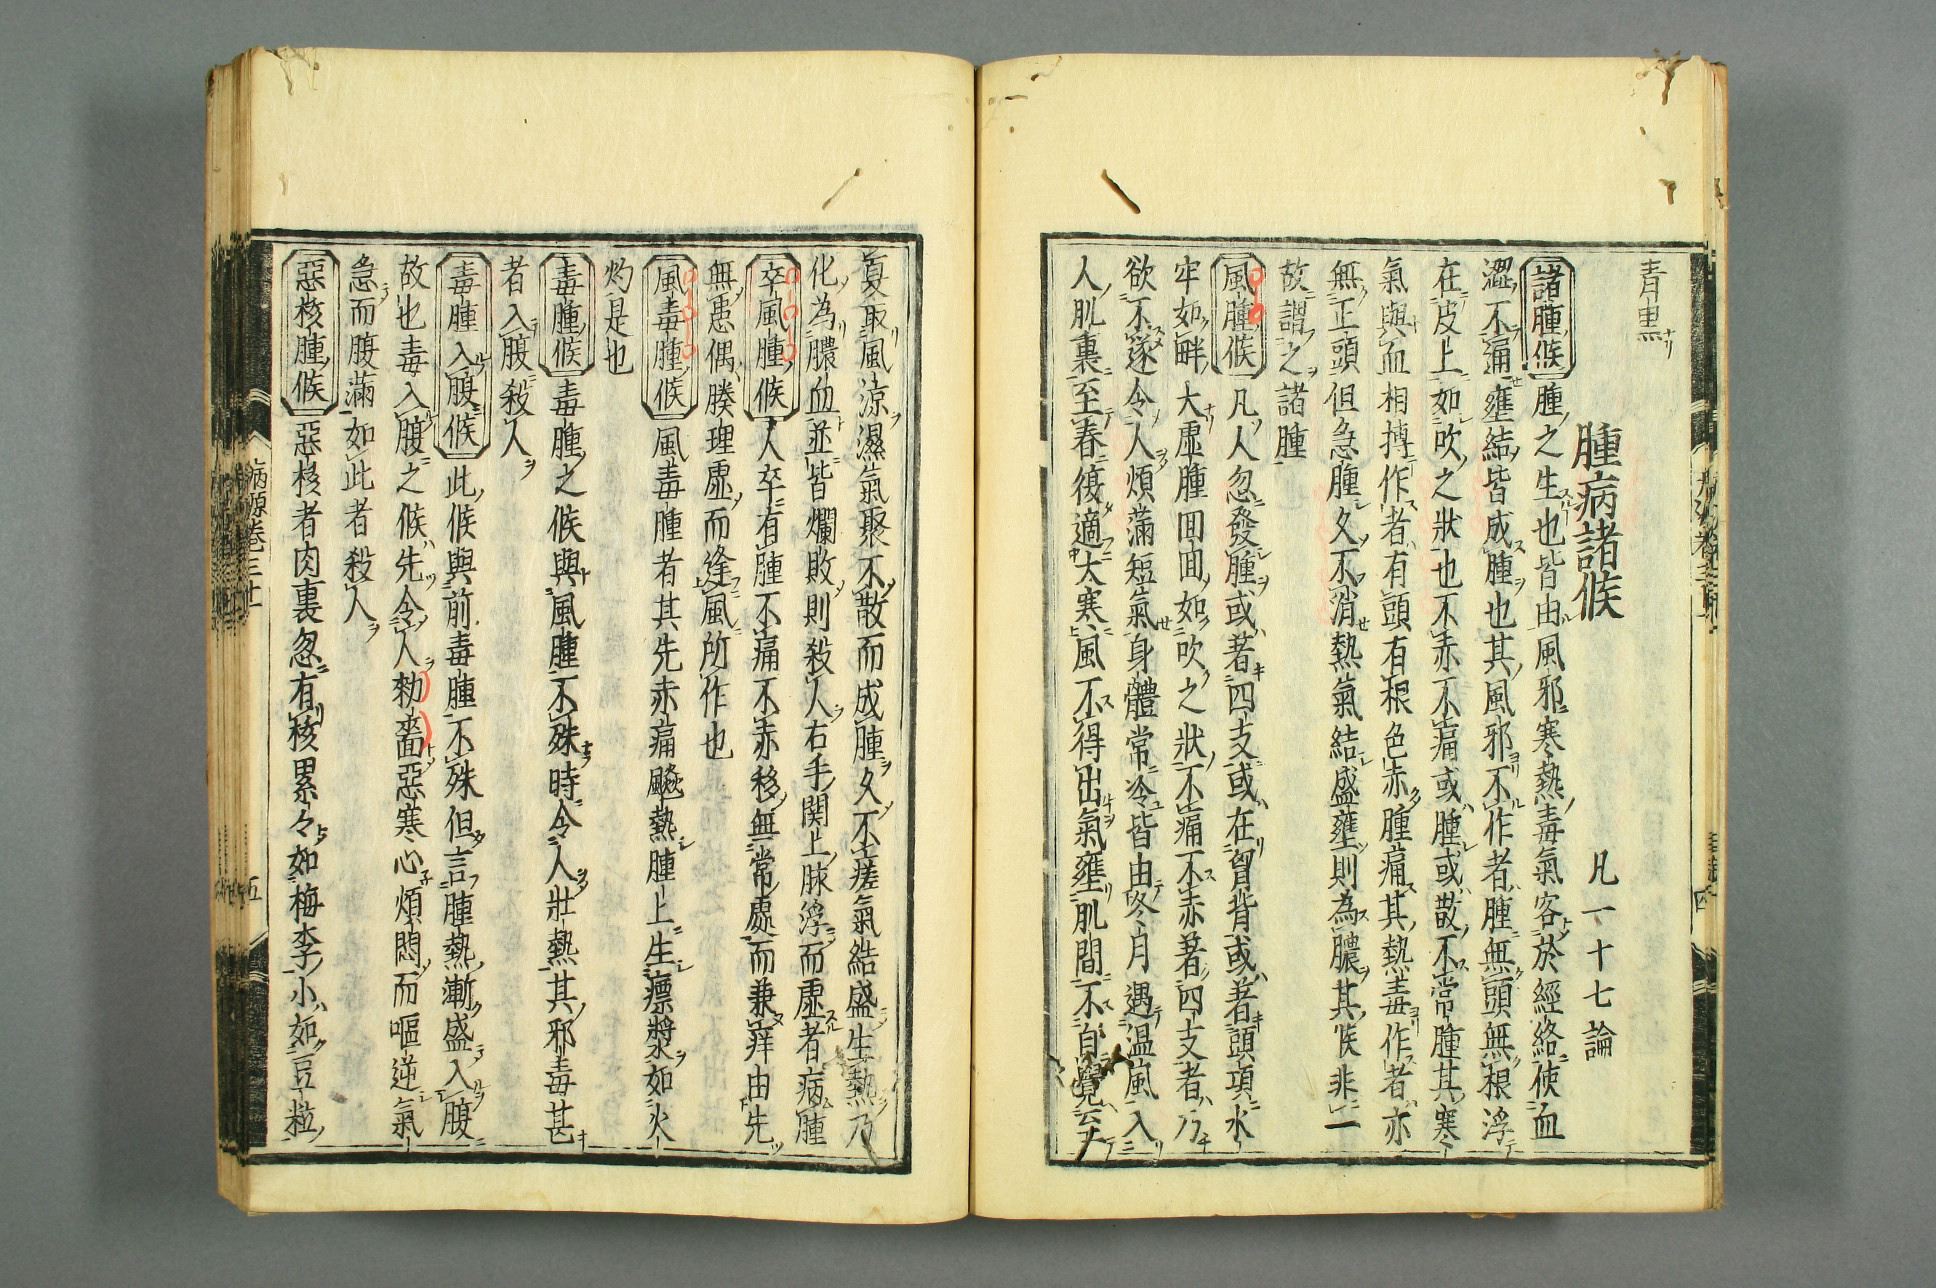 青黒
腫病諸候 凡一十七論
諸腫候 腫之生也皆由風邪寒熱毒氣客於經絡使血
澀不通壅結皆成腫也其風邪所作者腫無頭無根浮
在皮上如吹之狀也不赤不痛或腫或散不常腫其寒
氣與血相搏作者有頭有根色赤腫痛其熱毒作者亦
無正頭但急腫久不消熱氣結盛壅則為膿其候非一
故謂之諸腫
風腫候 凡人忽發腫或著四支或在胷背或著頭項水
牢如畔大虛腫回回如吹之狀不痛不赤著四支者乃
欲不遂令人煩滿短氣身體常冷皆由冬月遇温風入
人肌裏至春復適大寒風不得出氣壅肌間不自覺
夏取風涼濕氣聚不散而成腫久不瘥氣結盛生熱乃
化為膿血並皆爛敗則殺人右手関上脉浮而虛者病腫
卒風腫候 人卒有腫不痛不赤移無常處而兼痒由先
無患偶腠理虛而逢風所作也
風毒腫候 風毒腫者其先赤痛飈熱腫上生瘭漿如火
灼是也
毒腫候 毒腫之候與風腫不殊時令人壯熱其邪毒甚
者入腹殺人
毒腫入腹候 此候與前毒腫不殊但言腫熱漸盛入腹
故也毒入腹之候先令人㔟嗇惡寒心煩悶而嘔逆氣
急而腹滿如此者殺人
惡核腫候 惡核者肉裏忽有核累々如梅李小如豆粒
病源卷三十一
五
四